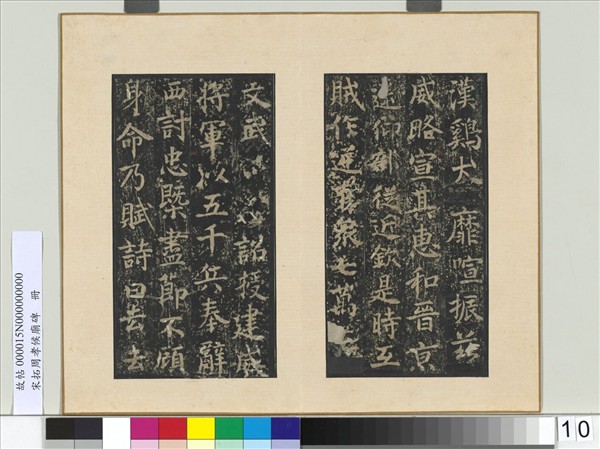 漢鷄犬靡喧振茲
威略宣其惠和晉京
仰部從近欽是時互
賊作逆衆七萬
文武詔授建威
將軍以五千兵奉辭
西討忠槩盡節不顧
身命乃賦詩曰去去
故帖 000015N000000000
宋拓周孝侯廟碑 冊
10